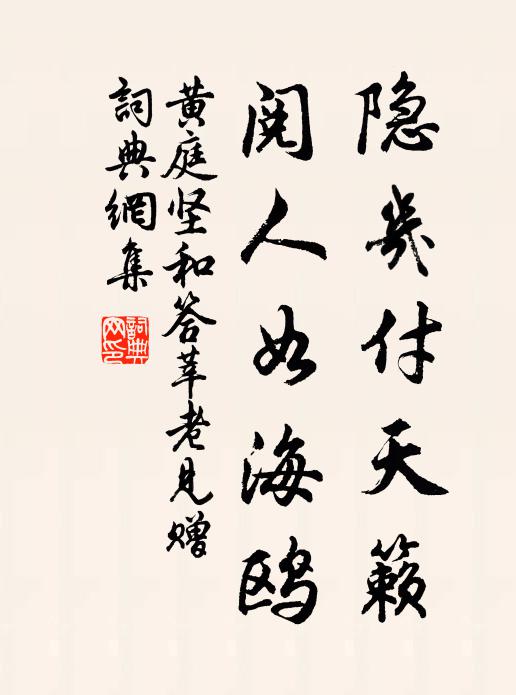 隐几付天籁
阅人如海鸥
黄庭坚和答莘老见赠
詞典網集
詞典
网印